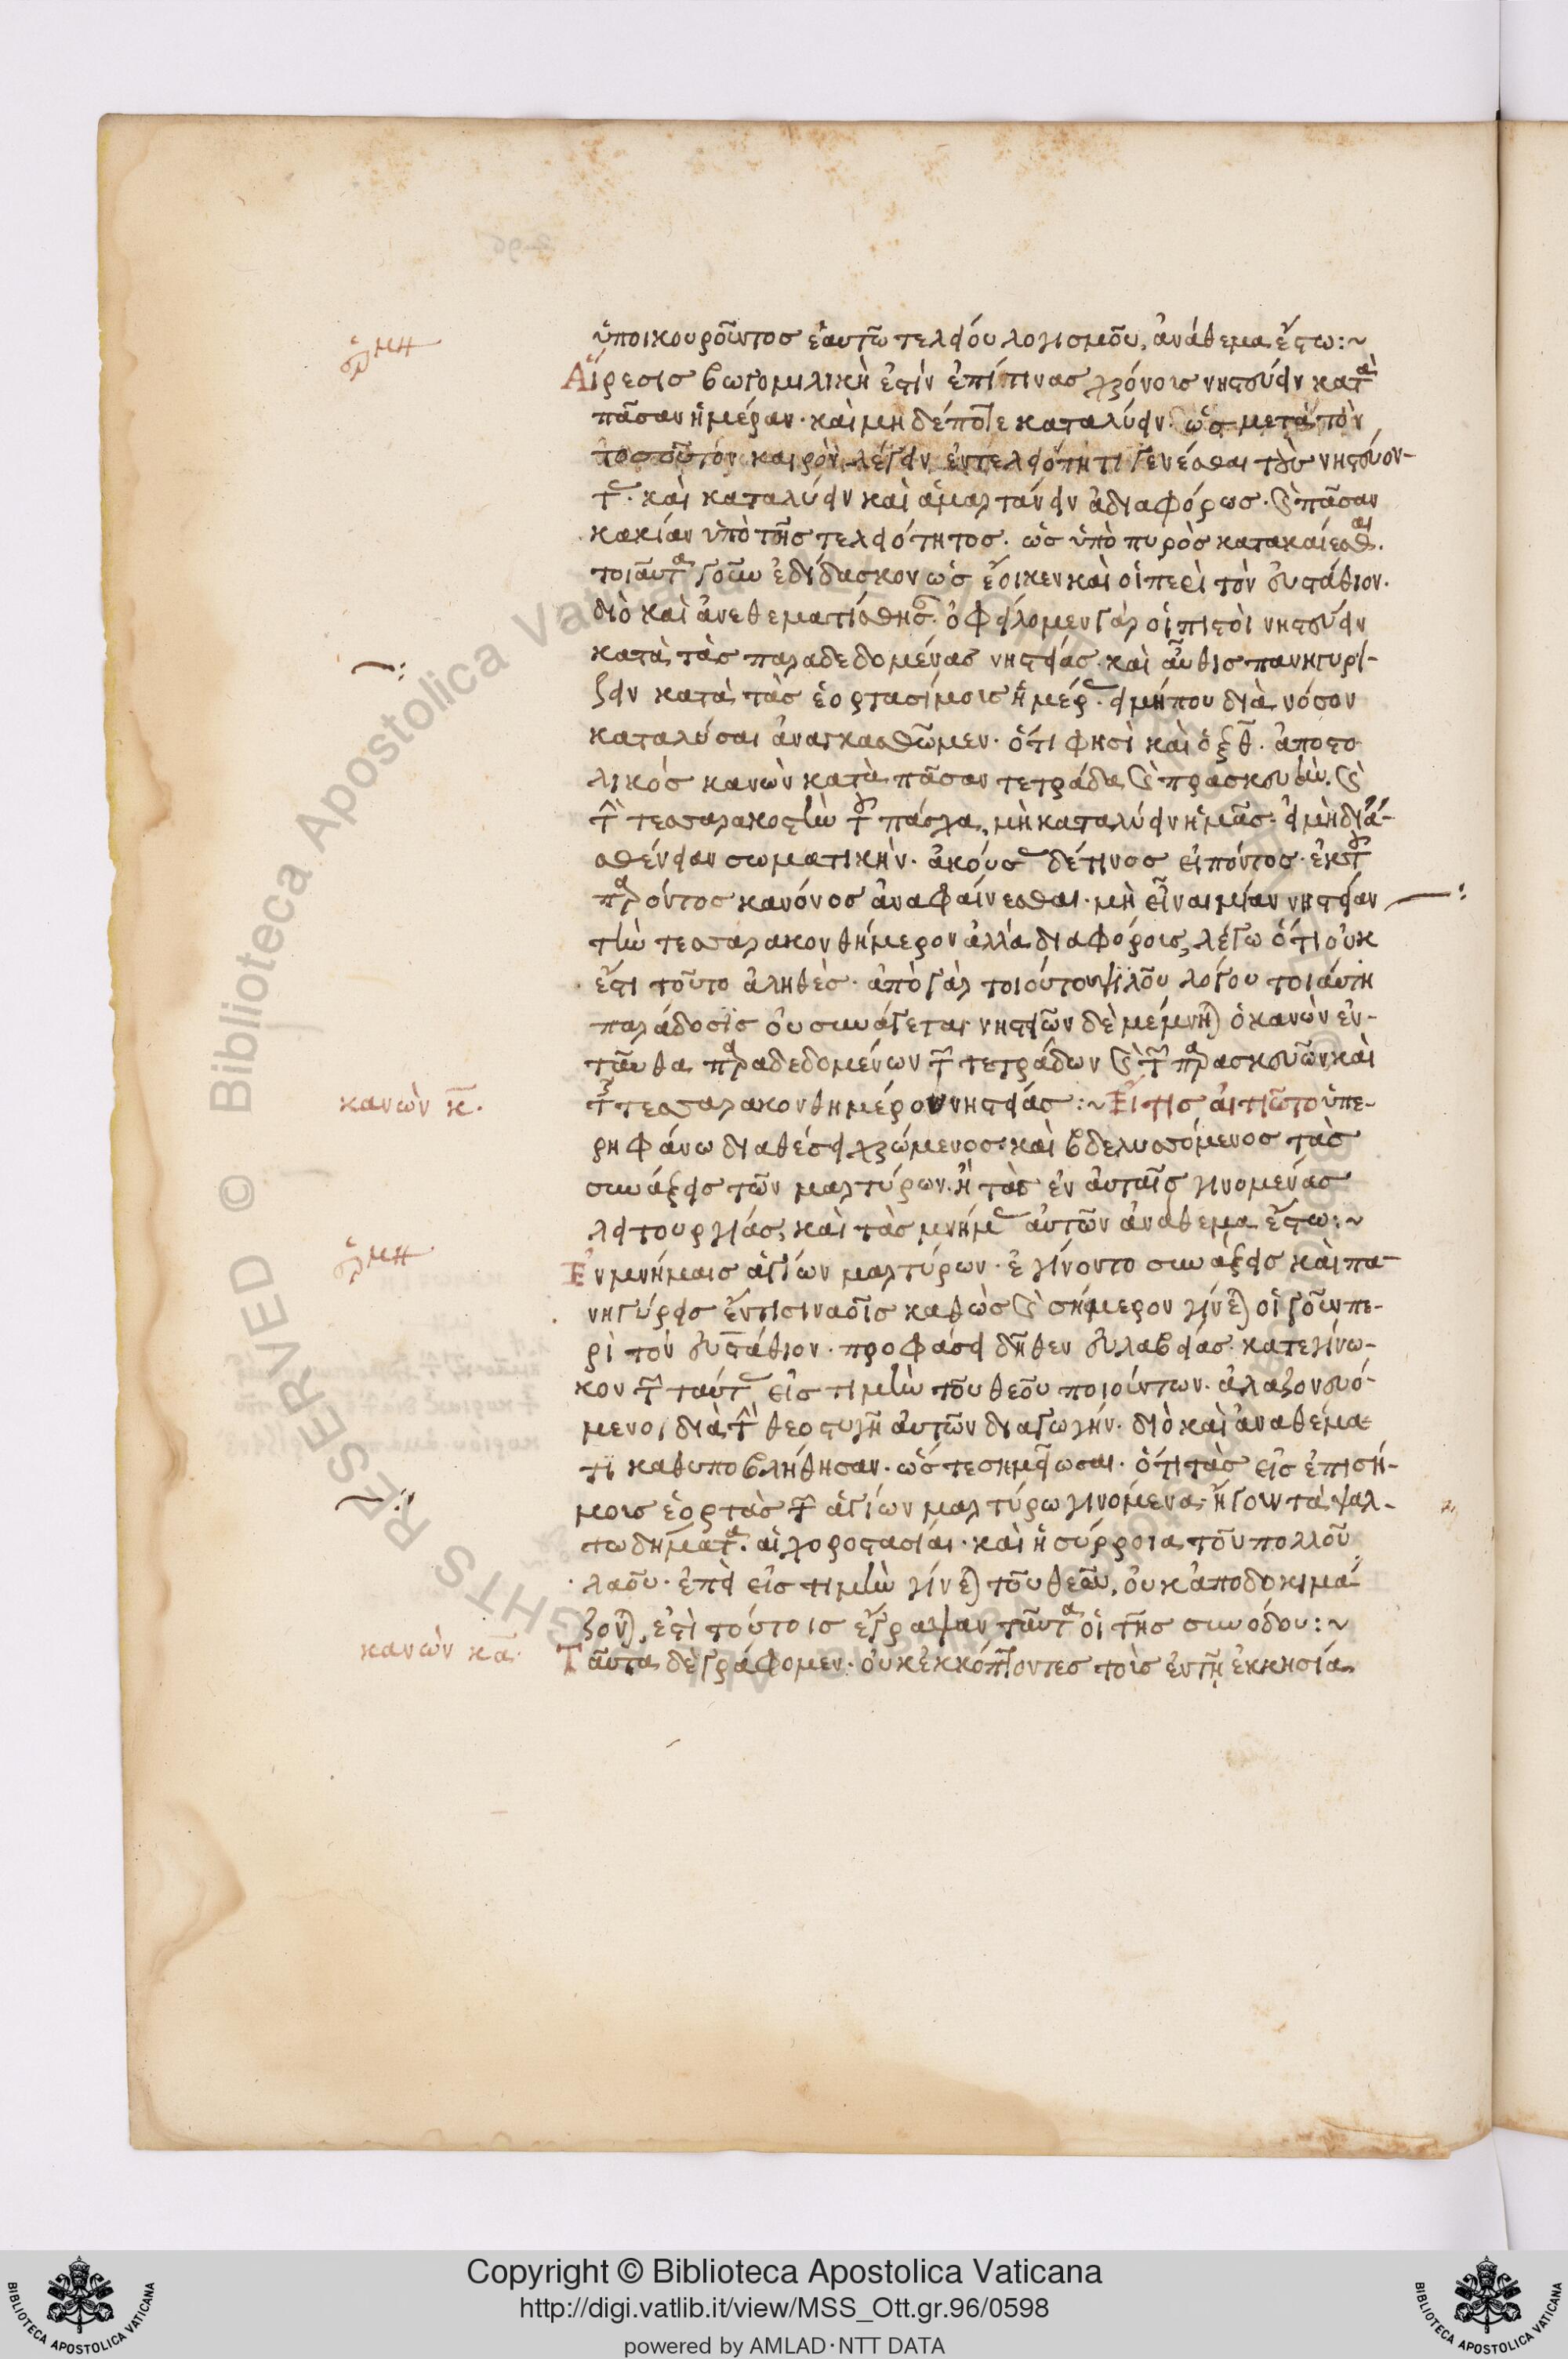 ὑποικουροῦντος ἑαυτῶ τελείου λογισμοῦ, ἀνάθεμα ἔστω:~
ἑρμη
Αἵρεσις βωγομιλικὴ ἐστὶν ἐπί τινας χρόνοις νηστεύειν κατὰ
πᾶσαν ἡμέραν· καὶ μὴ δέποτε καταλύειν· ὡς μετὰ τὸν
τοσοῦτον καιρὸν λέγειν ἐν τελειότητι γενέσθαι τοὺς νηστεύον-
τας· καὶ καταλύειν καὶ ἁμαρτάνειν ἀδιαφόρως· καὶ πᾶσαν
κακίαν ὑπὸ τῆς τελειότητος· ὡς ὑπὸ πυρὸς κατακαίεσθαι.
τοιαῦτα γοῦν ἐδίδασκον ὡς ἔοικεν καὶ οἱ περὶ τὸν εὐστάθιον.
διὸ καὶ ἀνεθεματίσθησαν· ὀφείλομεν γὰρ οἱ πιστοὶ νηστεύειν
κατὰ τὰς παραδεδομένας νηστείας· καὶ αὖθις πανηγυρί-
ζειν κατὰ τὰς ἑορτασίμοις ἡμέρας· εἰ μήπου διὰ νόσον
καταλύσαι ἀναγκασθῶμεν· ὅτι φησὶ καὶ ὁ ξθ. ἀποστο
λικὸς κανὼν κατὰ πᾶσαν τετράδα καὶ πρασκευὴν, καὶ
τὴν τεσσαρακοστὴν τοῦ πάσχα, μὴ καταλύειν ἡμᾶς· εἰ μὴ δι' ἀ-
σθένειαν σωματικήν· ἀκούσας δέ τινος εἰπόντος· ἐκ τοῦ
παρόντος κανόνος ἀναφαίνεσθαι· μὴ εἶναι μίαν νηστείαν
τὴν τεσσαρακονθήμερον ἀλλὰ διαφόροις, λέγω ὅτι οὐκ
ἔστι τοῦτο ἀληθὲς· ἀπὸ γὰρ τοιούτου ψιλοῦ λόγου τοιαύτη
παράδοσις οὐ συνάγεται νηστειῶν δὲ μέμνηται ὁ κανὼν ἐν-
ταῦθα παραδεδομένων τῶν τετράδων καὶ τῶν παρασκευῶν καὶ
κανὼν κ.
τῆς τεσσαρακονθημέρου νηστείας:~ Εἴ τις αἰτιῶτο ὑπε-
ρηφάνω διαθέσει χρώμενος· καὶ βδελυσσόμενος τὰς
συνάξεις τῶν μαρτύρων· ἢ τὰς ἐν αὐταῖς γινομένας
λειτουργίας, καὶ τὰς μνήμας αὐτῶν ἀνάθεμα ἔστω:~
ἑρμη
Ἐν μνήμαις ἁγίων μαρτύρων· ἐγίνοντο συνάξεις καὶ πα-
νηγύρεις ἔν τισι ναοῖς καθὼς καὶ σήμερον γίνεται οἱ γοῦν πε-
ρὶ τὸν εὐστάθιον· προφάσει δῆθεν εὐλαβείας· κατεγίνω-
κον τῶν ταύτας εἰς τιμὴν τοῦ θεοῦ ποιούντων· ἀλαζονευό-
μενοι διὰ τὴν θεοστυγῆ αὐτῶν διαγωγήν· διὸ καὶ ἀναθέμα-
τι καθυποβλήθησαν· ὥστε σημείωσαι· ὅτι τὰς εἰς ἐπισή-
μοις ἑορτὰς τῶν ἁγίων μαρτύρω γινόμενα· ἤγουν τὰ ψαλ-
τωδήματα· αἱ χοροστασίαι· καὶ ἡ σύρροια τοῦ πολλοῦ
λαοῦ· ἐπεὶ εἰς τιμὴν γίνεται τοῦ θεοῦ, οὐκ ἀποδοκιμά-
ζονται, ἐπὶ τούτοις ἔγραψαν ταῦτα οἱ τῆς συνόδου:~
κανὼν κα.
Ταῦτα δὲ γράφομεν· οὐκ ἐκκόπτοντες τοὶς ἐν τῇ ἐκκησία
RIGHTS RESERVED © Biblioteca Apostolica Vaticana
Copyright © Biblioteca Apostolica Vaticana
http://digi.vatlib.it/view/MSS_Ott.gr.96/0598
powered by AMLAD·NTT DATA
BIBLIOTECA APOSTOLICA VATICANA
BIBLIOTECA APOSTOLICA VATICANA